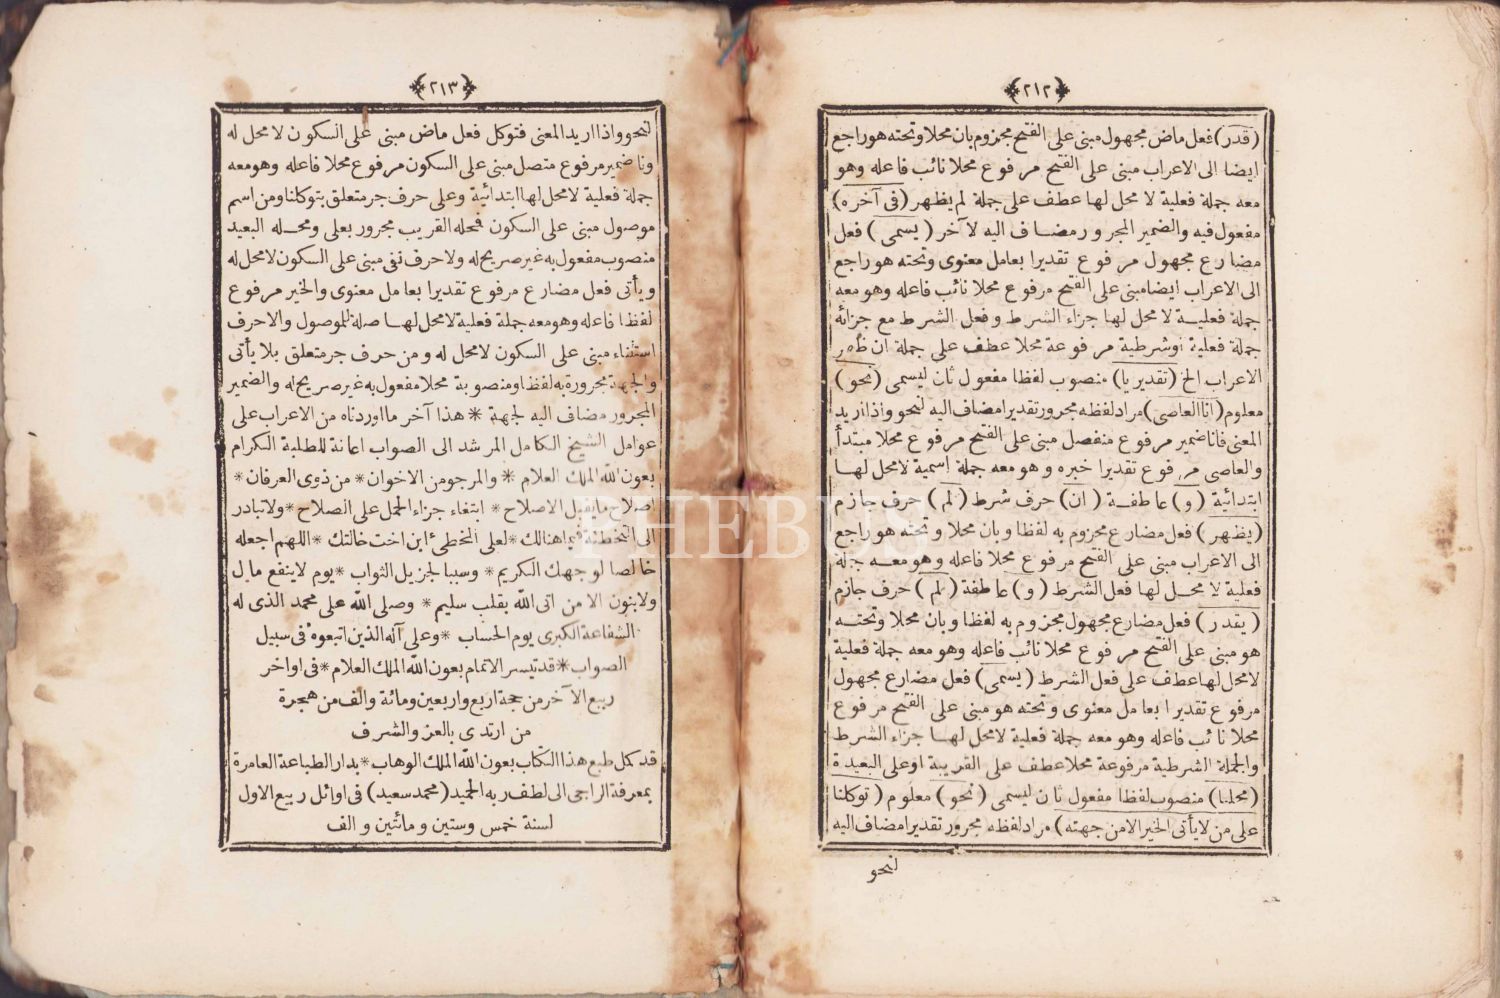 ﴿٢١٢﴾
(قدر) فعل ماض مجهول مبنى على الفتح مجزوم بان محلا وتحته هو راجع
ايضا الى الاعراب مبنى على الفتح مرفوع محلا نائب فاعله وهو
معه جملة فعلية لا محل لها عطف على جملة لم يظهر (فى آخره)
مفعول فيه والضمير المجرور مضاف اليه لآخر (يسمى) فعل
مضارع مجهول مرفوع تقديرا بعامل معنوى وتحته هو راجع
الى الاعراب ايضا مبنى على الفتح مرفوع محلا نائب فاعله وهو معه
جملة فعلية لا محل لها جزاء الشرط وفعل الشرط مع جزائه
جملة فعلية اوشرطية مرفوعة محلا عطف على جملة ان ظهر
الاعراب الخ (تقديريا) منصوب لفظا مفعول ثان ليسمى (نحو)
معلوم (انا العاصى) مراد لفظه مجرور تقديرا مضاف اليه لنحو واذا اريد
المعنى فانا ضمير مرفوع منفصل مبنى على الفتح مرفوع محلا مبتدأ
والعاصى مرفوع تقديرا خبره وهو معه جملة اسمية لا محل لها
ابتدائية (و) عاطفة (ان) حرف شرط (لم) حرف جازم
(يظهر) فعل مضارع مجزوم به لفظا وبان محلا وتحته هو راجع
الى الاعراب مبنى على الفتح مرفوع محلا فاعله وهو معه جملة
فعلية لا محل لها فعل الشرط (و) عاطفة (لم) حرف جازم
(يقدر) فعل مضارع مجهول مجزوم به لفظا وبان محلا وتحته
هو مبنى على الفتح مرفوع محلا نائب فاعله وهو معه جملة فعلية
لا محل لها عطف على فعل الشرط (يسمى) فعل مضارع مجهول
مرفوع تقديرا بعامل معنوى وتحته هو مبنى على الفتح مرفوع
محلا نائب فاعله وهو معه جملة فعلية لا محل لها جزاء الشرط
والجملة الشرطية مرفوعة محلا عطف على القريبة او على البعيدة
(محليا) منصوب لفظا مفعول ثان ليسمى (نحو) معلوم (توكلنا
على من لا يأتى الخير الا من جهته) مراد لفظه مجرور تقديرا مضاف اليه
لنحو
﴿٢١٣﴾
لنحو واذا اريد المعنى فتوكل فعل ماض مبنى على السكون لا محل له
ونا ضمير مرفوع متصل مبنى على السكون مرفوع محلا فاعله وهو معه
جملة فعلية لا محل لها ابتدائية وعلى حرف جر متعلق بتوكلنا ومن اسم
موصول مبنى على السكون فمحله القريب مجرور بعلى ومحله البعيد
منصوب مفعول به غير صريح له ولا حرف نفى مبنى على السكون لا محل له
ويأتى فعل مضارع مرفوع تقديرا بعامل معنوى والخير مرفوع
لفظا فاعله وهو معه جملة فعلية لا محل لها صلة للموصول والا حرف
استثناء مبنى على السكون لا محل له ومن حرف جر متعلق بلا يأتى
والجهة مجرورة به لفظا ومنصوبة محلا مفعول به غير صريح له والضمير
المجرور مضاف اليه لجهة * هذا آخر ما اوردناه من الاعراب على
عوامل الشيخ الكامل المرشد الى الصواب اعانة للطلبة الكرام
بعون الله الملك العلام * والمرجو من الاخوان * من ذوى العرفان *
اصلاح ما يقبل الاصلاح * ابتغاء جزاء الحمل على الصلاح * ولا تبادر
الى التخطئة فيما هنالك * لعلى المخطئ ابن اخت خالتك * اللهم اجعله
خالصا لوجهك الكريم * وسببا لجزيل الثواب * يوم لا ينفع مال
ولا بنون الا من اتى الله بقلب سليم * وصلى الله على محمد الذى له
الشفاعة الكبرى يوم الحساب * وعلى آله الذين اتبعوه فى سبيل
الصواب * قد تيسر الاتمام بعون الله الملك العلام * فى اواخر
ربيع الآخر من حجة اربع واربعين ومائة والف من هجرة
من ارتدى بالعز والشرف
قد كمل طبع هذا الكتاب بعون الله الملك الوهاب * بدار الطباعة العامرة
بمعرفة الراجى الى لطف ربه الحميد (محمد سعيد) فى اوائل ربيع الاول
لسنة خمس وستين ومائتين والف
PHEBUS